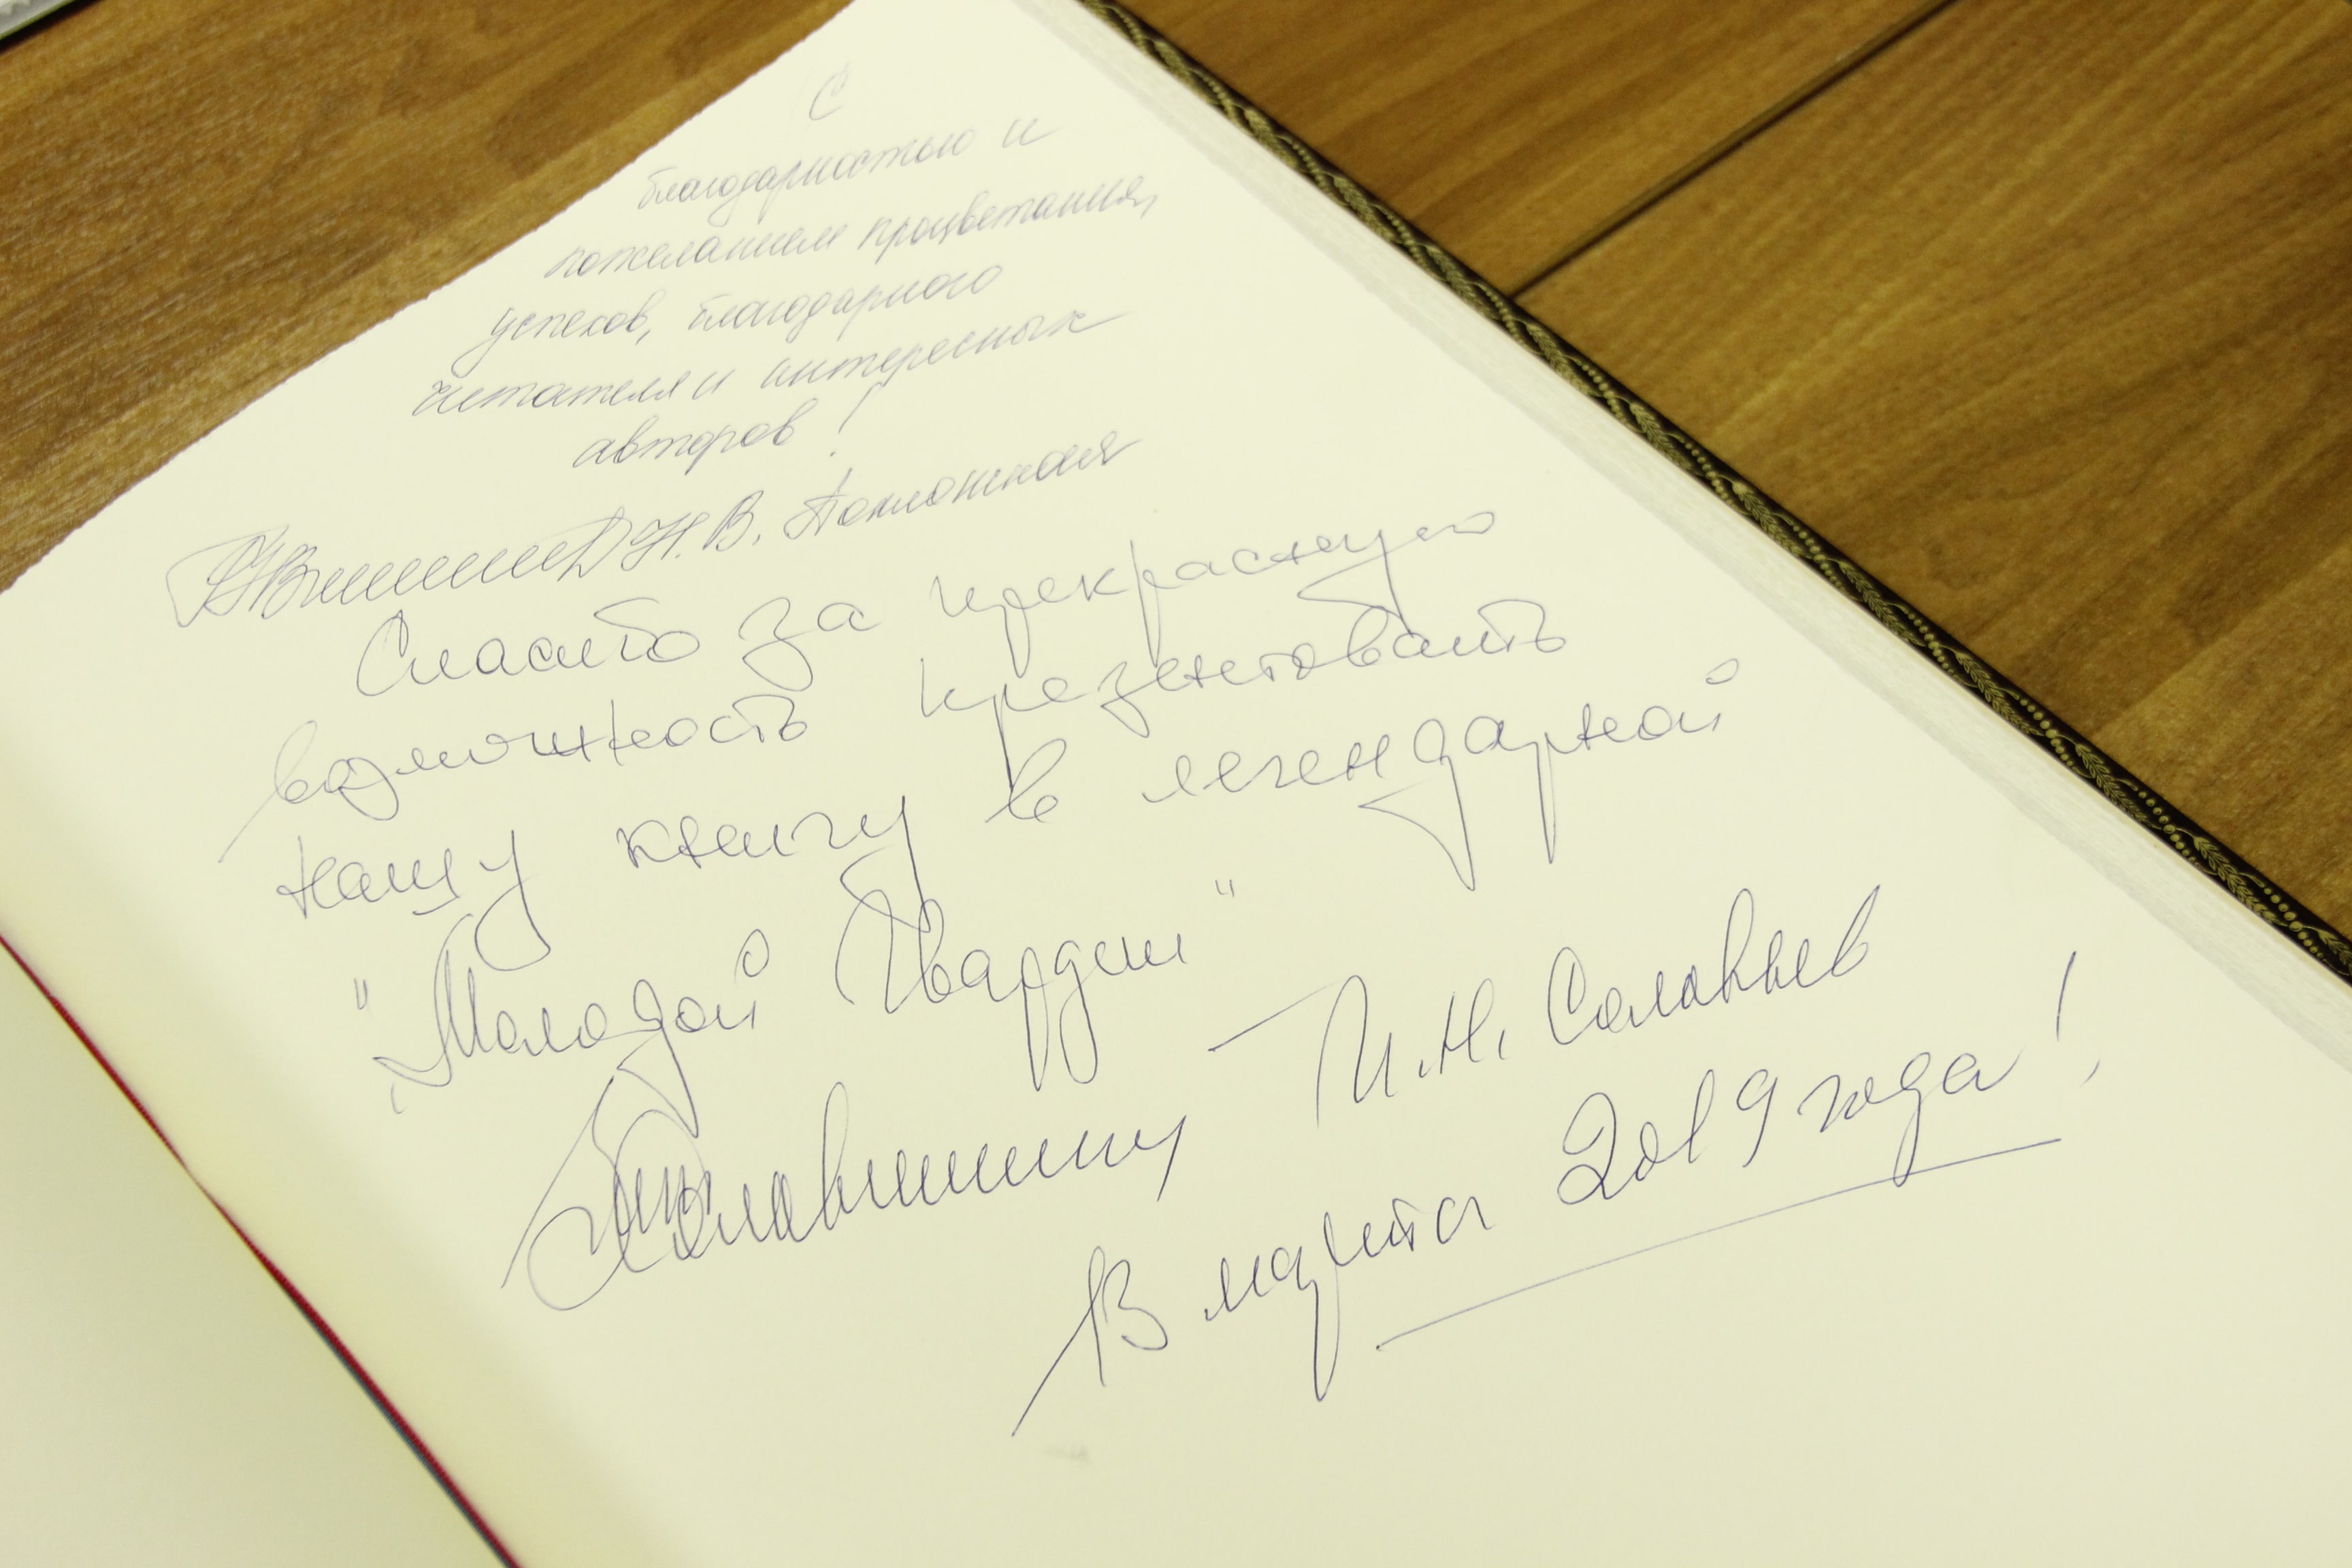 С
благодарностью и
пожеланием процветания,
успехов, благодарного
читателя и интересных
авторов!
Н.В.
Спасибо за прекрасную
возможность презентовать
нашу книгу в легендарной
"Молодой Гвардии"
И.Н. Соловьев
В марта 2019 года!